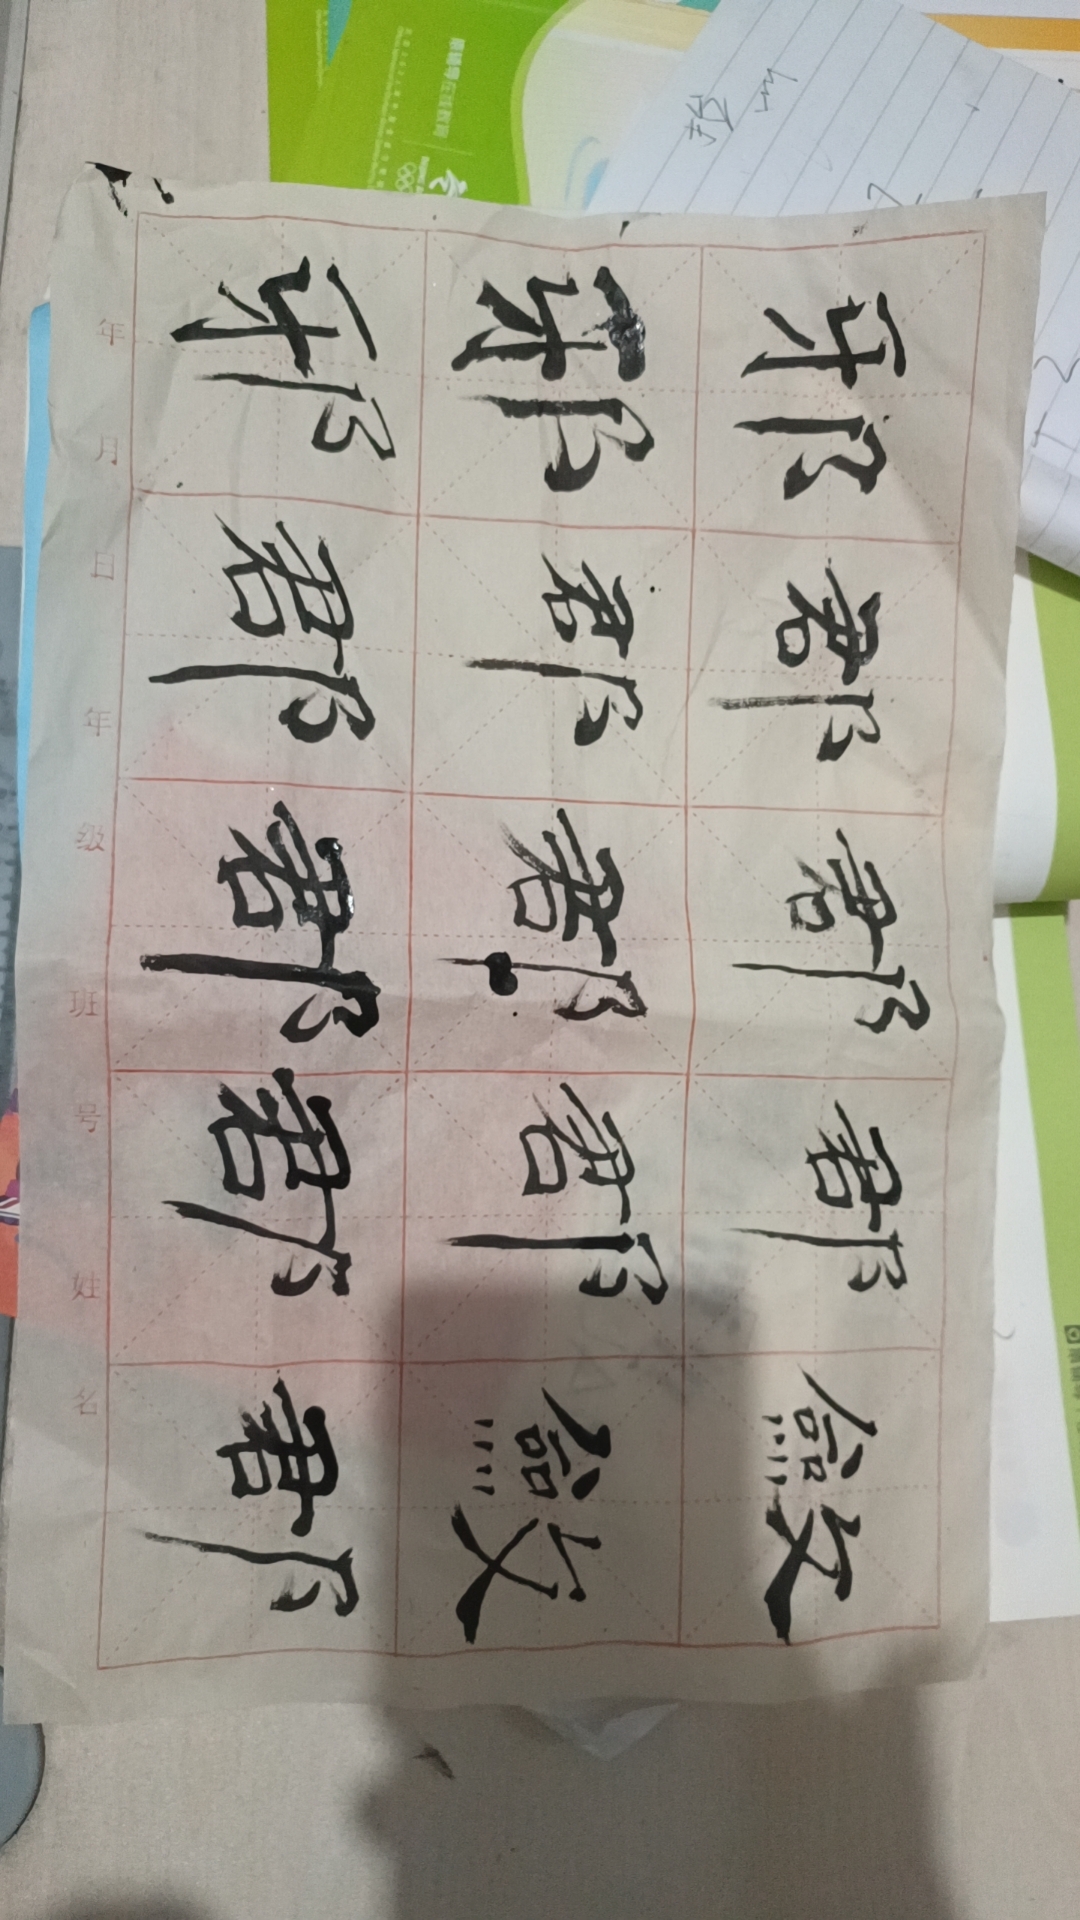 邪郡郡郡斂
邪郡郡郡斂
邪郡郡郡郡
年 月 日 年 级 班 号 姓 名